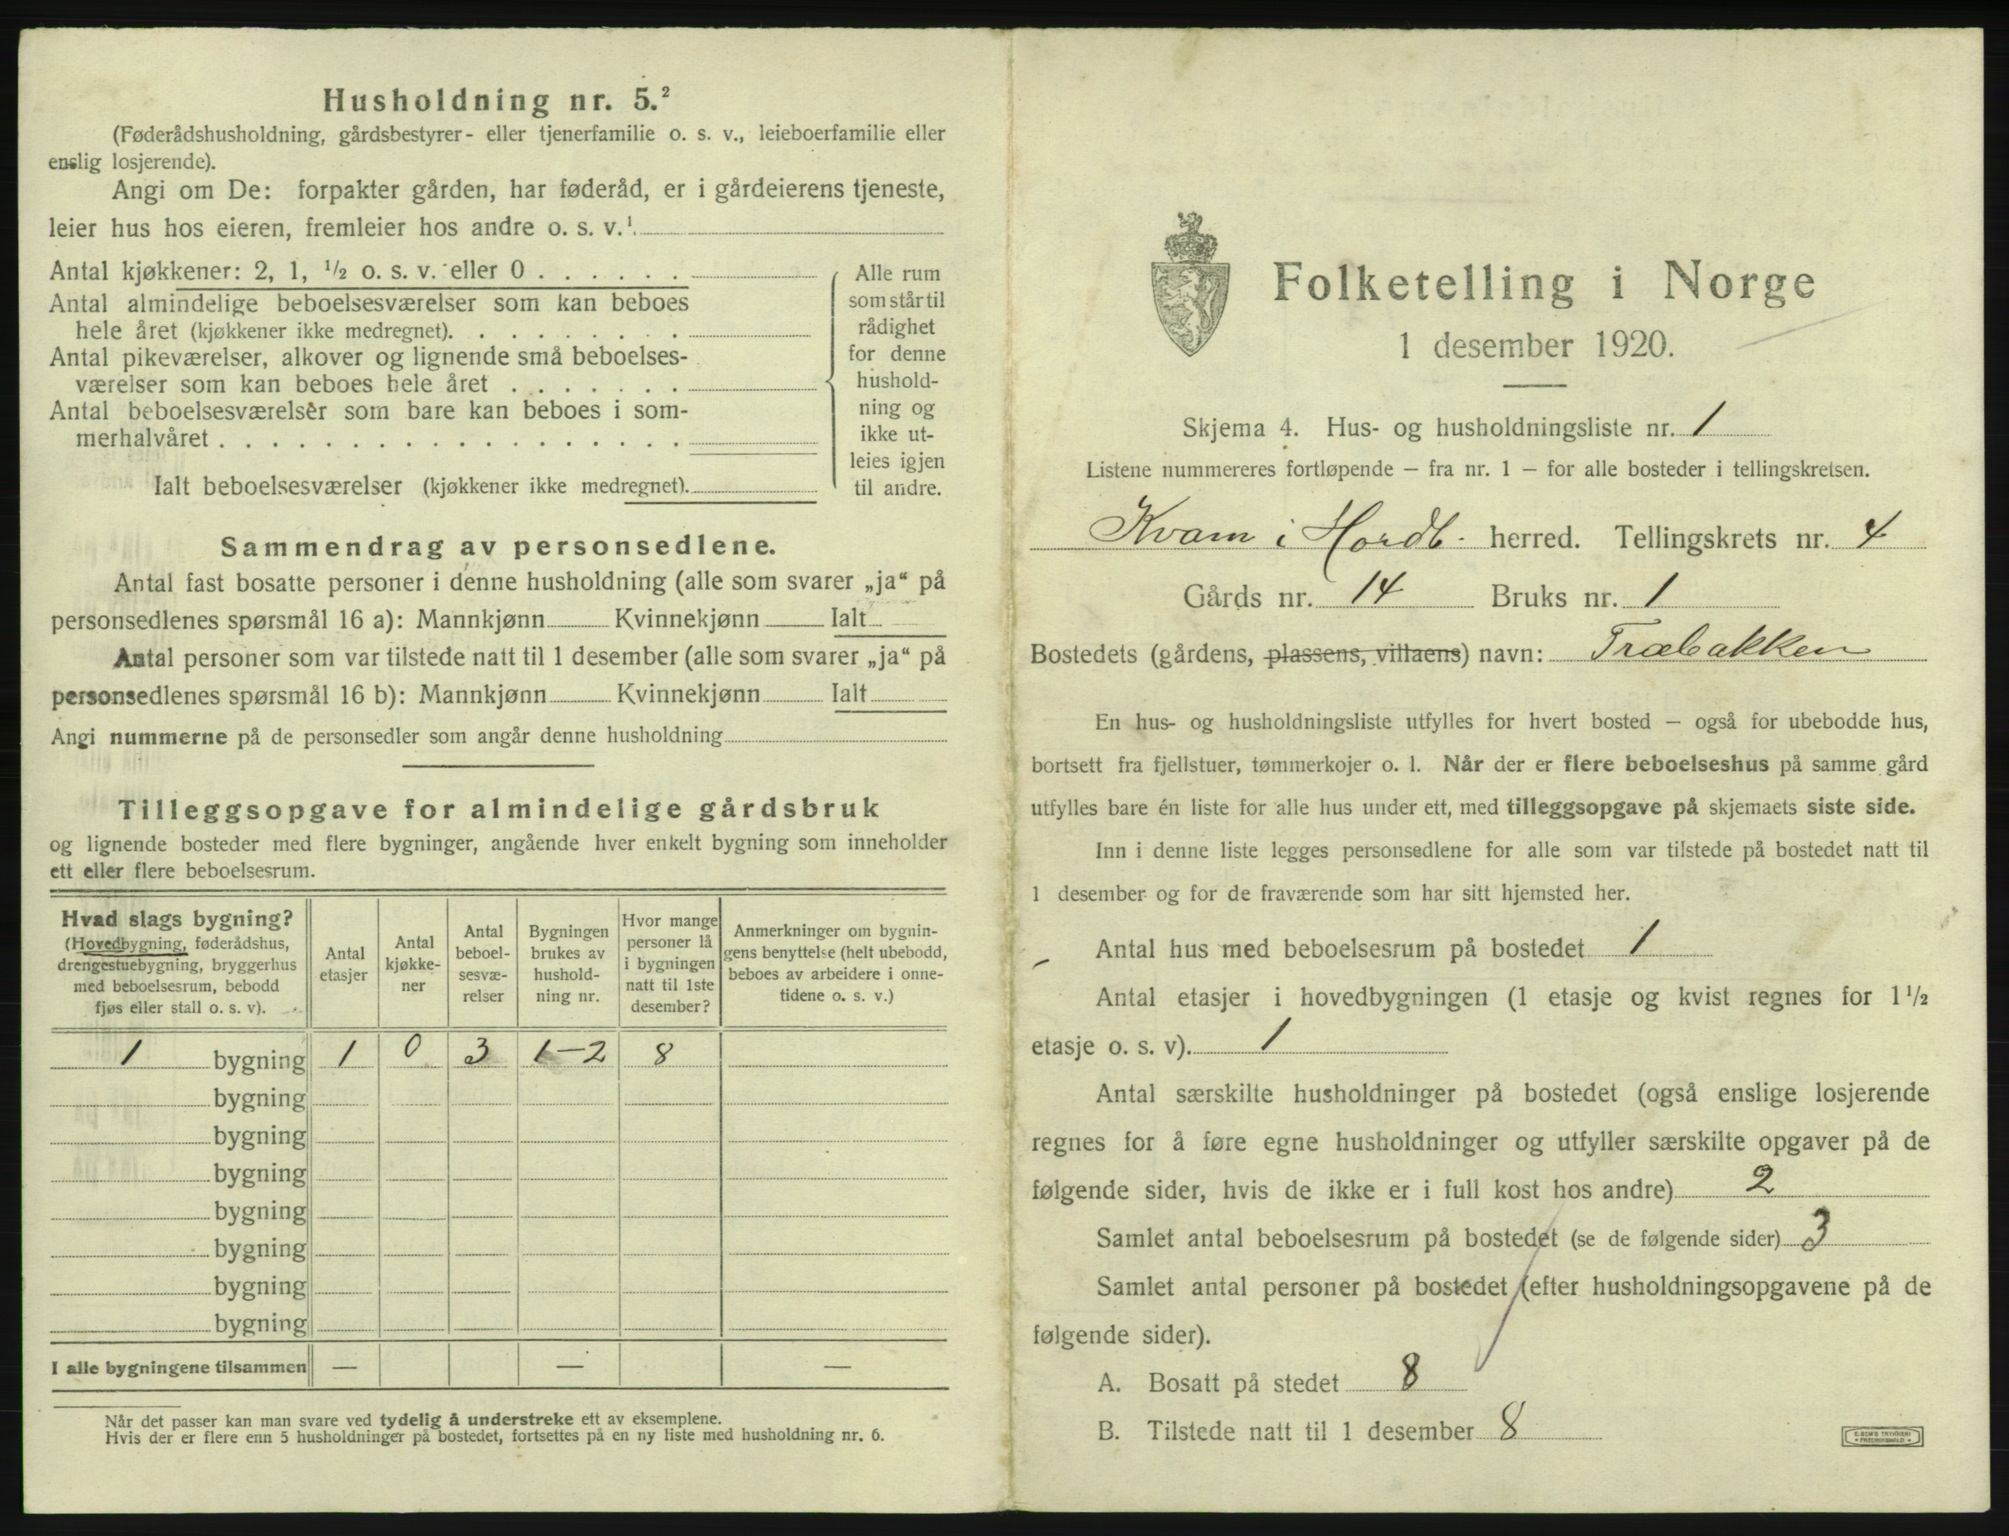 Husholdning nr. 5.²
(Føderådshusholdning, gårdsbestyrer- eller tjenerfamilie o. s. v., leieboerfamilie eller
enslig losjerende).
Angi om De: forpakter gården, har føderåd, er i gårdeierens tjeneste,
leier hus hos eieren, fremleier hos andre o. s. v.¹
Antal kjøkkener: 2, 1, ½ o. s. v. eller 0 . . . . . .
Antal almindelige beboelsesværelser som kan beboes
hele året (kjøkkener ikke medregnet). . . . . . . . .
Antal pikeværelser, alkover og lignende små beboelses-
værelser som kan beboes hele året . . . . . . .
Antal beboelsesværelser som bare kan beboes i som-
merhalvåret . . . . . . . . . . . . . . . . . .
Ialt beboelsesværelser (kjøkkener ikke medregnet).
Alle rum
som står til
rådighet
for denne
hushold-
ning og
ikke ut-
leies igjen
til andre.
Sammendrag av personsedlene.
Antal fast bosatte personer i denne husholdning (alle som svarer „ja“ på
personsedlenes spørsmål 16 a): Mannkjønn Kvinnekjønn Ialt
Antal personer som var tilstede natt til 1 desember (alle som svarer „ja“ på
personsedlenes spørsmål 16 b): Mannkjønn Kvinnekjønn Ialt
Angi nummerne på de personsedler som angår denne husholdning
Tilleggsopgave for almindelige gårdsbruk
og lignende bosteder med flere bygninger, angående hver enkelt bygning som inneholder
ett eller flere beboelsesrum.
Hvad slags bygning?
(Hovedbygning, føderådshus,
drengestuebygning, bryggerhus
med beboelsesrum, bebodd
fjøs eller stall o. s. v).
Antal
etasjer
Antal
kjøkke-
ner
Antal
beboel-
sesvæ-
relser
Bygningen
brukes av
hushold-
ning nr.
Hvor mange
personer lå
i bygningen
natt til 1ste
desember?
Anmerkninger om bygnin-
gens benyttelse (helt ubebodd,
beboes av arbeidere i onne-
tidene o. s. v.)
1 bygning 1 0 3 1-2 8
bygning
bygning
bygning
bygning
bygning
bygning
bygning
I alle bygningene tilsammen — — —
Når det passer kan man svare ved tydelig å understreke ett av eksemplene.
Hvis der er flere enn 5 husholdninger på bostedet, fortsettes på en ny liste med husholdning nr. 6.
Folketelling i Norge
1 desember 1920.
Skjema 4. Hus- og husholdningsliste nr. 1
Listene nummereres fortløpende – fra nr. 1 – for alle bosteder i tellingskretsen.
Kvam i Hordl. herred. Tellingskrets nr. 4
Gårds nr. 14 Bruks nr. 1
Bostedets (gårdens, plassens, villaens) navn: Træbakken
En hus- og husholdningsliste utfylles for hvert bosted – også for ubebodde hus,
bortsett fra fjellstuer, tømmerkojer o. l. Når der er flere beboelseshus på samme gård
utfylles bare én liste for alle hus under ett, med tilleggsopgave på skjemaets siste side.
Inn i denne liste legges personsedlene for alle som var tilstede på bostedet natt til
1 desember og for de fraværende som har sitt hjemsted her.
Antal hus med beboelsesrum på bostedet 1
Antal etasjer i hovedbygningen (1 etasje og kvist regnes for 1½
etasje o. s. v). 1
Antal særskilte husholdninger på bostedet (også enslige losjerende
regnes for å føre egne husholdninger og utfyller særskilte opgaver på de
følgende sider, hvis de ikke er i full kost hos andre) 2
Samlet antal beboelsesrum på bostedet (se de følgende sider) 3
Samlet antal personer på bostedet (efter husholdningsopgavene på de
følgende sider).
A. Bosatt på stedet 8
B. Tilstede natt til 1 desember 8